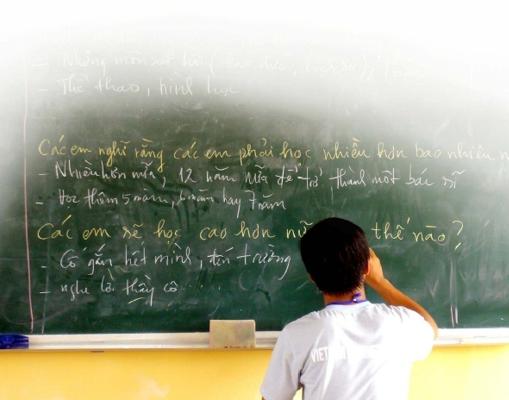 - Những môn
- Thể thao, hình học
Các em nghĩ rằng các em phải học nhiều hơn bao nhiêu n
- Nhiều hơn nữa, 12 năm nữa để trở thành một bác sĩ
- Học thêm 5 năm, 6 năm hay 7 năm
Các em sẽ học cao hơn nữ thế nào?
- Cố gắng hết mình, đến trường
- nghe lời thầy cô....
VIET